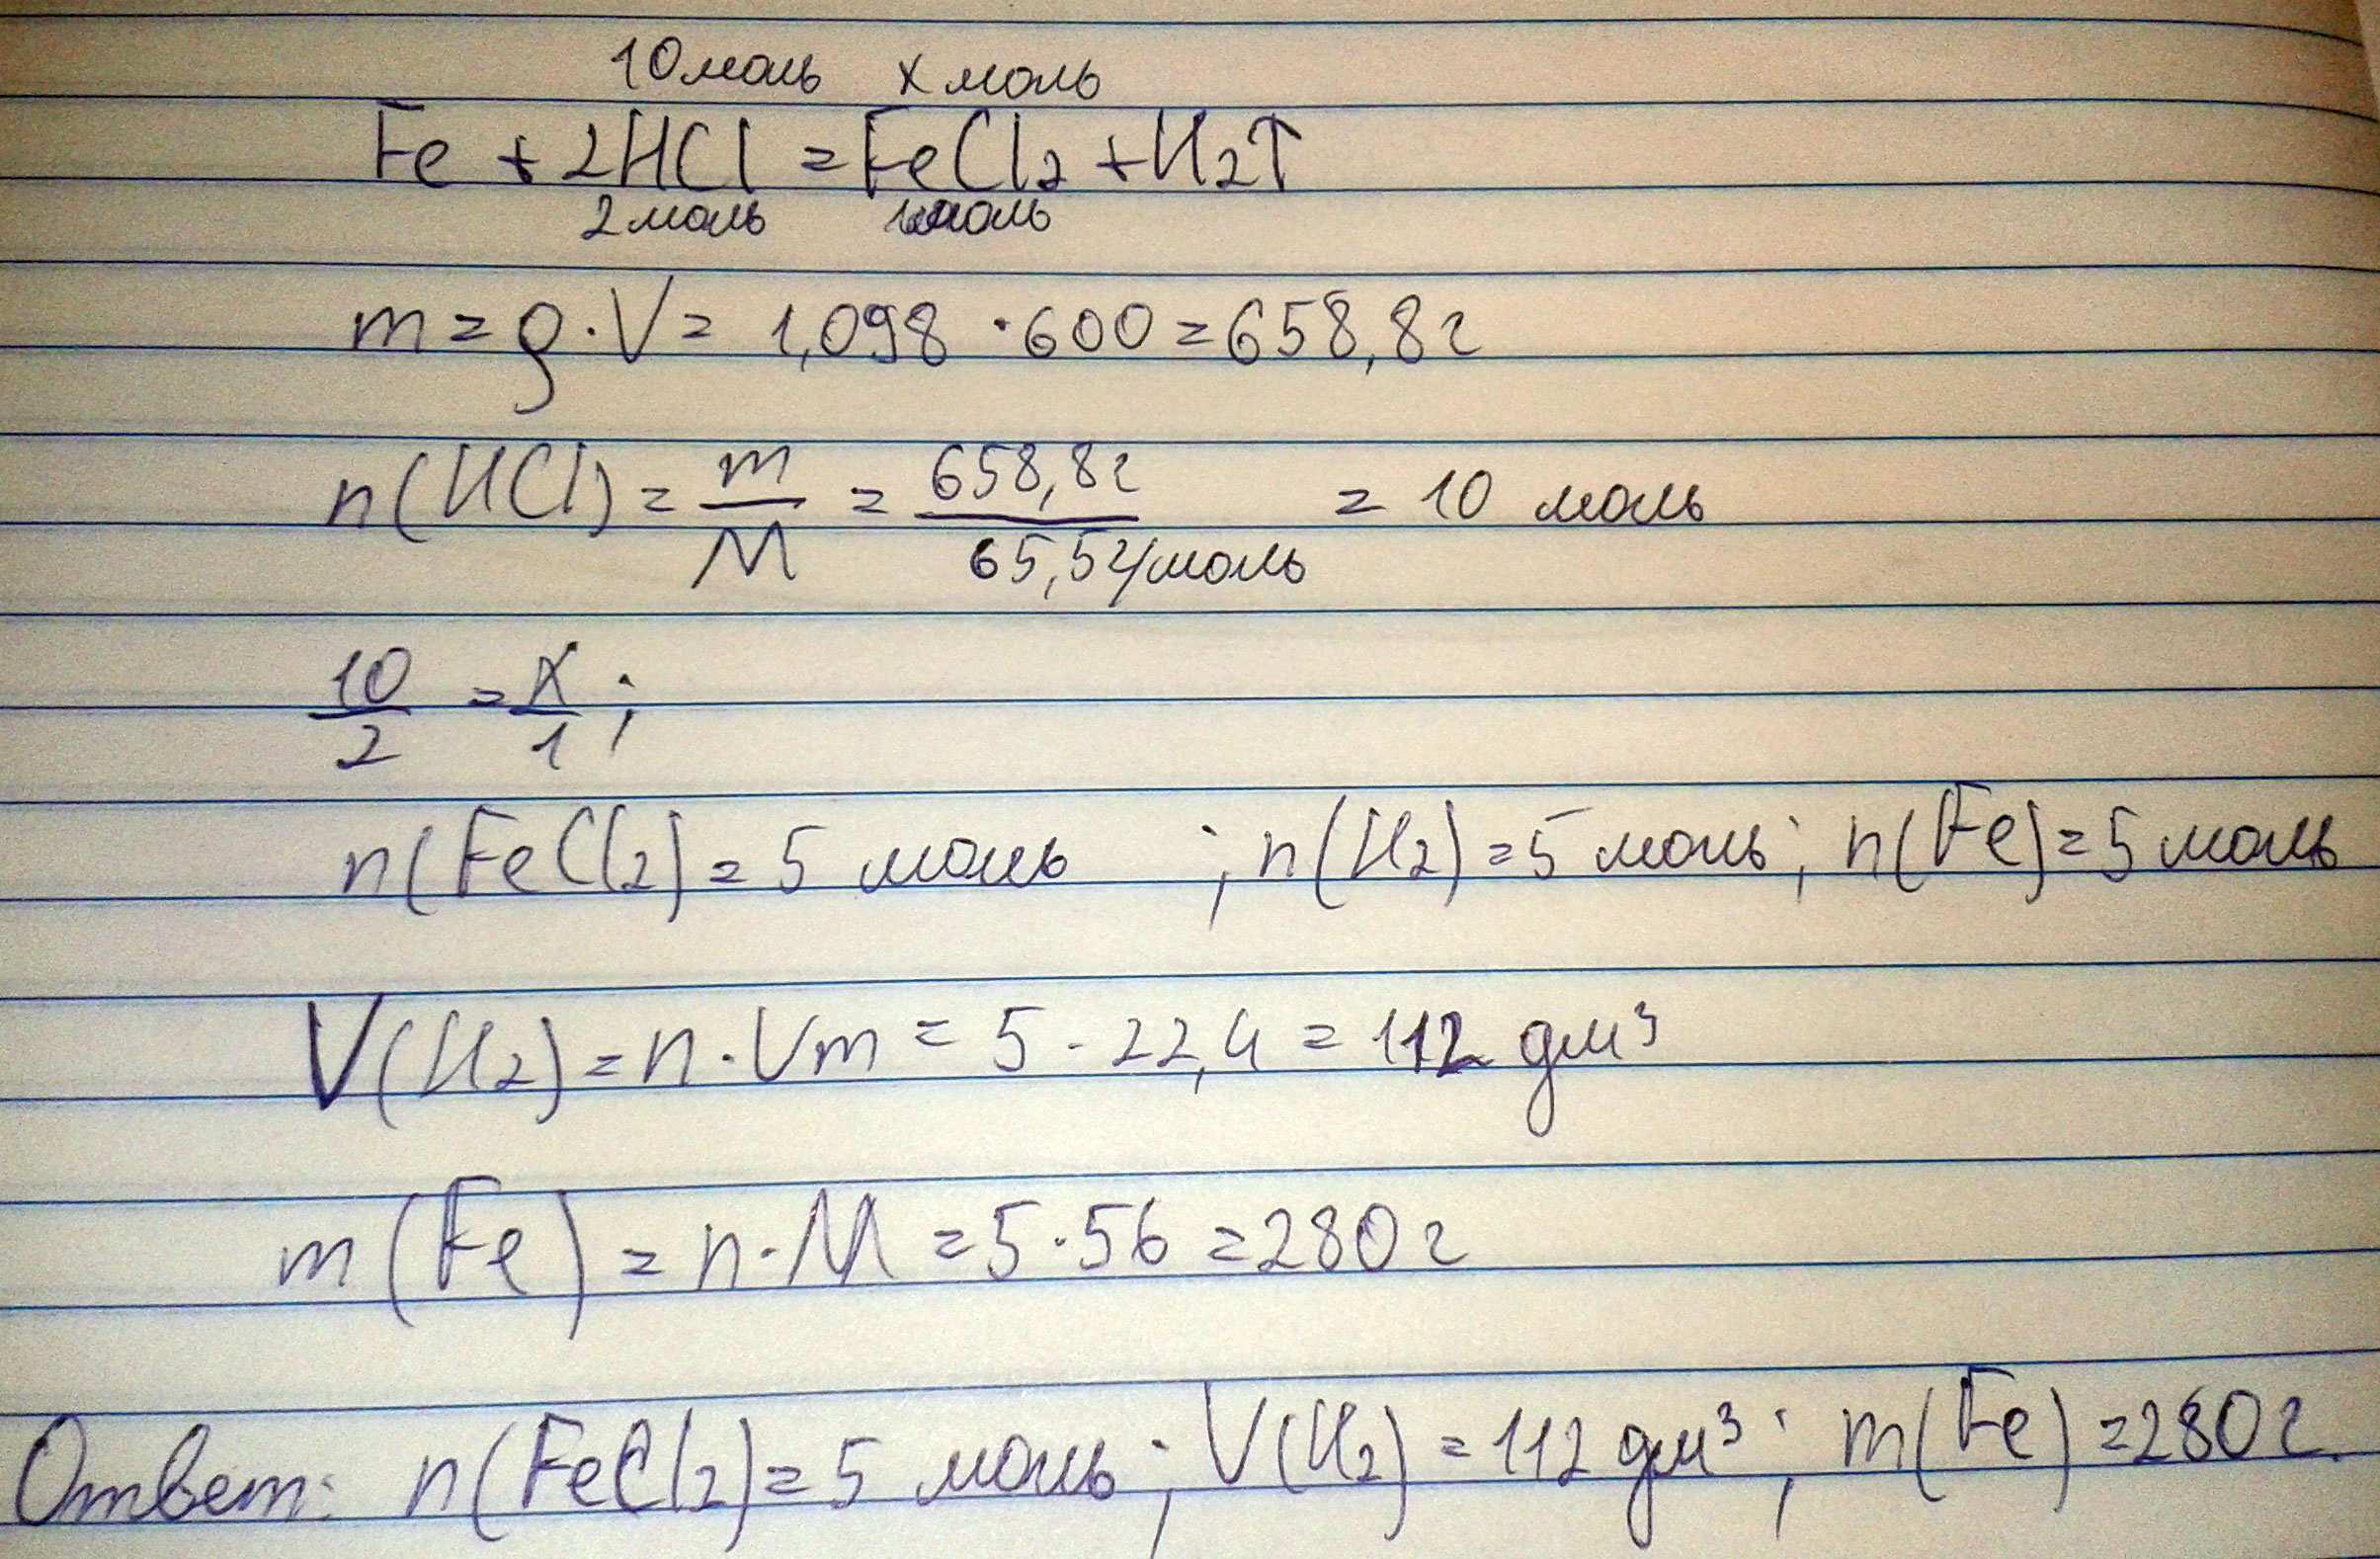 10моль x моль
Fe + 2HCl = FeCl₂ + H₂↑
2моль 1моль
m = ρ · V = 1,098 · 600 = 658,8г
n(HCl) = m/M = 658,8г/65,5г/моль = 10 моль
10/2 = x/1 ;
n(FeCl₂) = 5 моль ; n(H₂) = 5 моль ; n(Fe) = 5 моль
V(H₂) = n · Vm = 5 · 22,4 = 112 дм³
m(Fe) = n · M = 5 · 56 = 280 г
Ответ: n(FeCl₂) = 5 моль ; V(H₂) = 112 дм³ ; m(Fe) = 280 г.